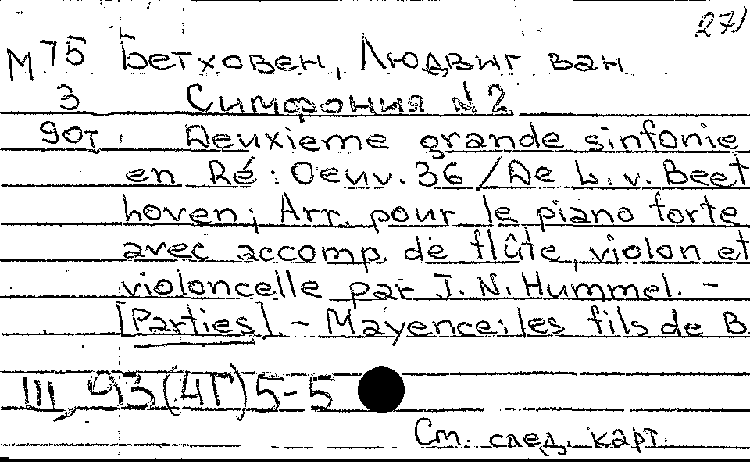 27)
М75 Бетховен, Людвиг ван
3 Симфония N2
90т. Deuxieme grande sinfonie
en Ré: Oeuv. 36 / De L. v. Beet
hoven; Arr. pour le piano forte
avec accomp. de flûte, violon et
violoncelle par J. N. Hummel. –
[Parties]. – Mayence: les fils de B.
III, 93(4Г)5-5
См. след. карт.